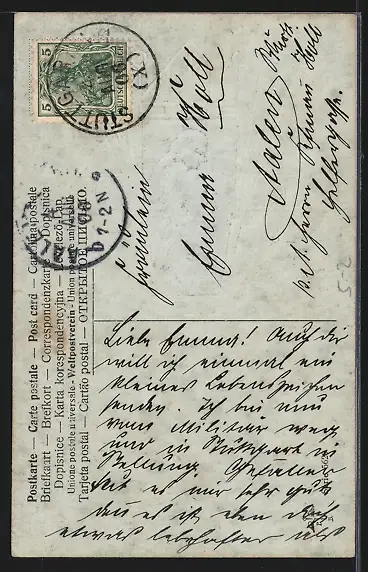 Postkarte — Carte postale — Post card — Cartolina postale
Briefkaart — Brefkort — Correspondenzkarte — Dopisnica
Dopisnice — Karta korespondencyjna — Levelező-Lap.
Unione postale universale - Weltpostverein - Union postale universelle
Tarjeta postal — Cartão postal — ОТКРЫТОЕ ПИСЬМО.
5 5
STUTTGART
1-2 N
Fräulein
Emma Holl
Aalen
Herrn Holl
Liebe Emma! Auch dir
will ich einmal ein
kleines Lebenszeichen
senden. Ich bin nun
vom Militär weg
und in Stuttgart in
Stellung. Gefallen
tut es mir sehr gut
den es ist eben doch
etwas lebhafter als